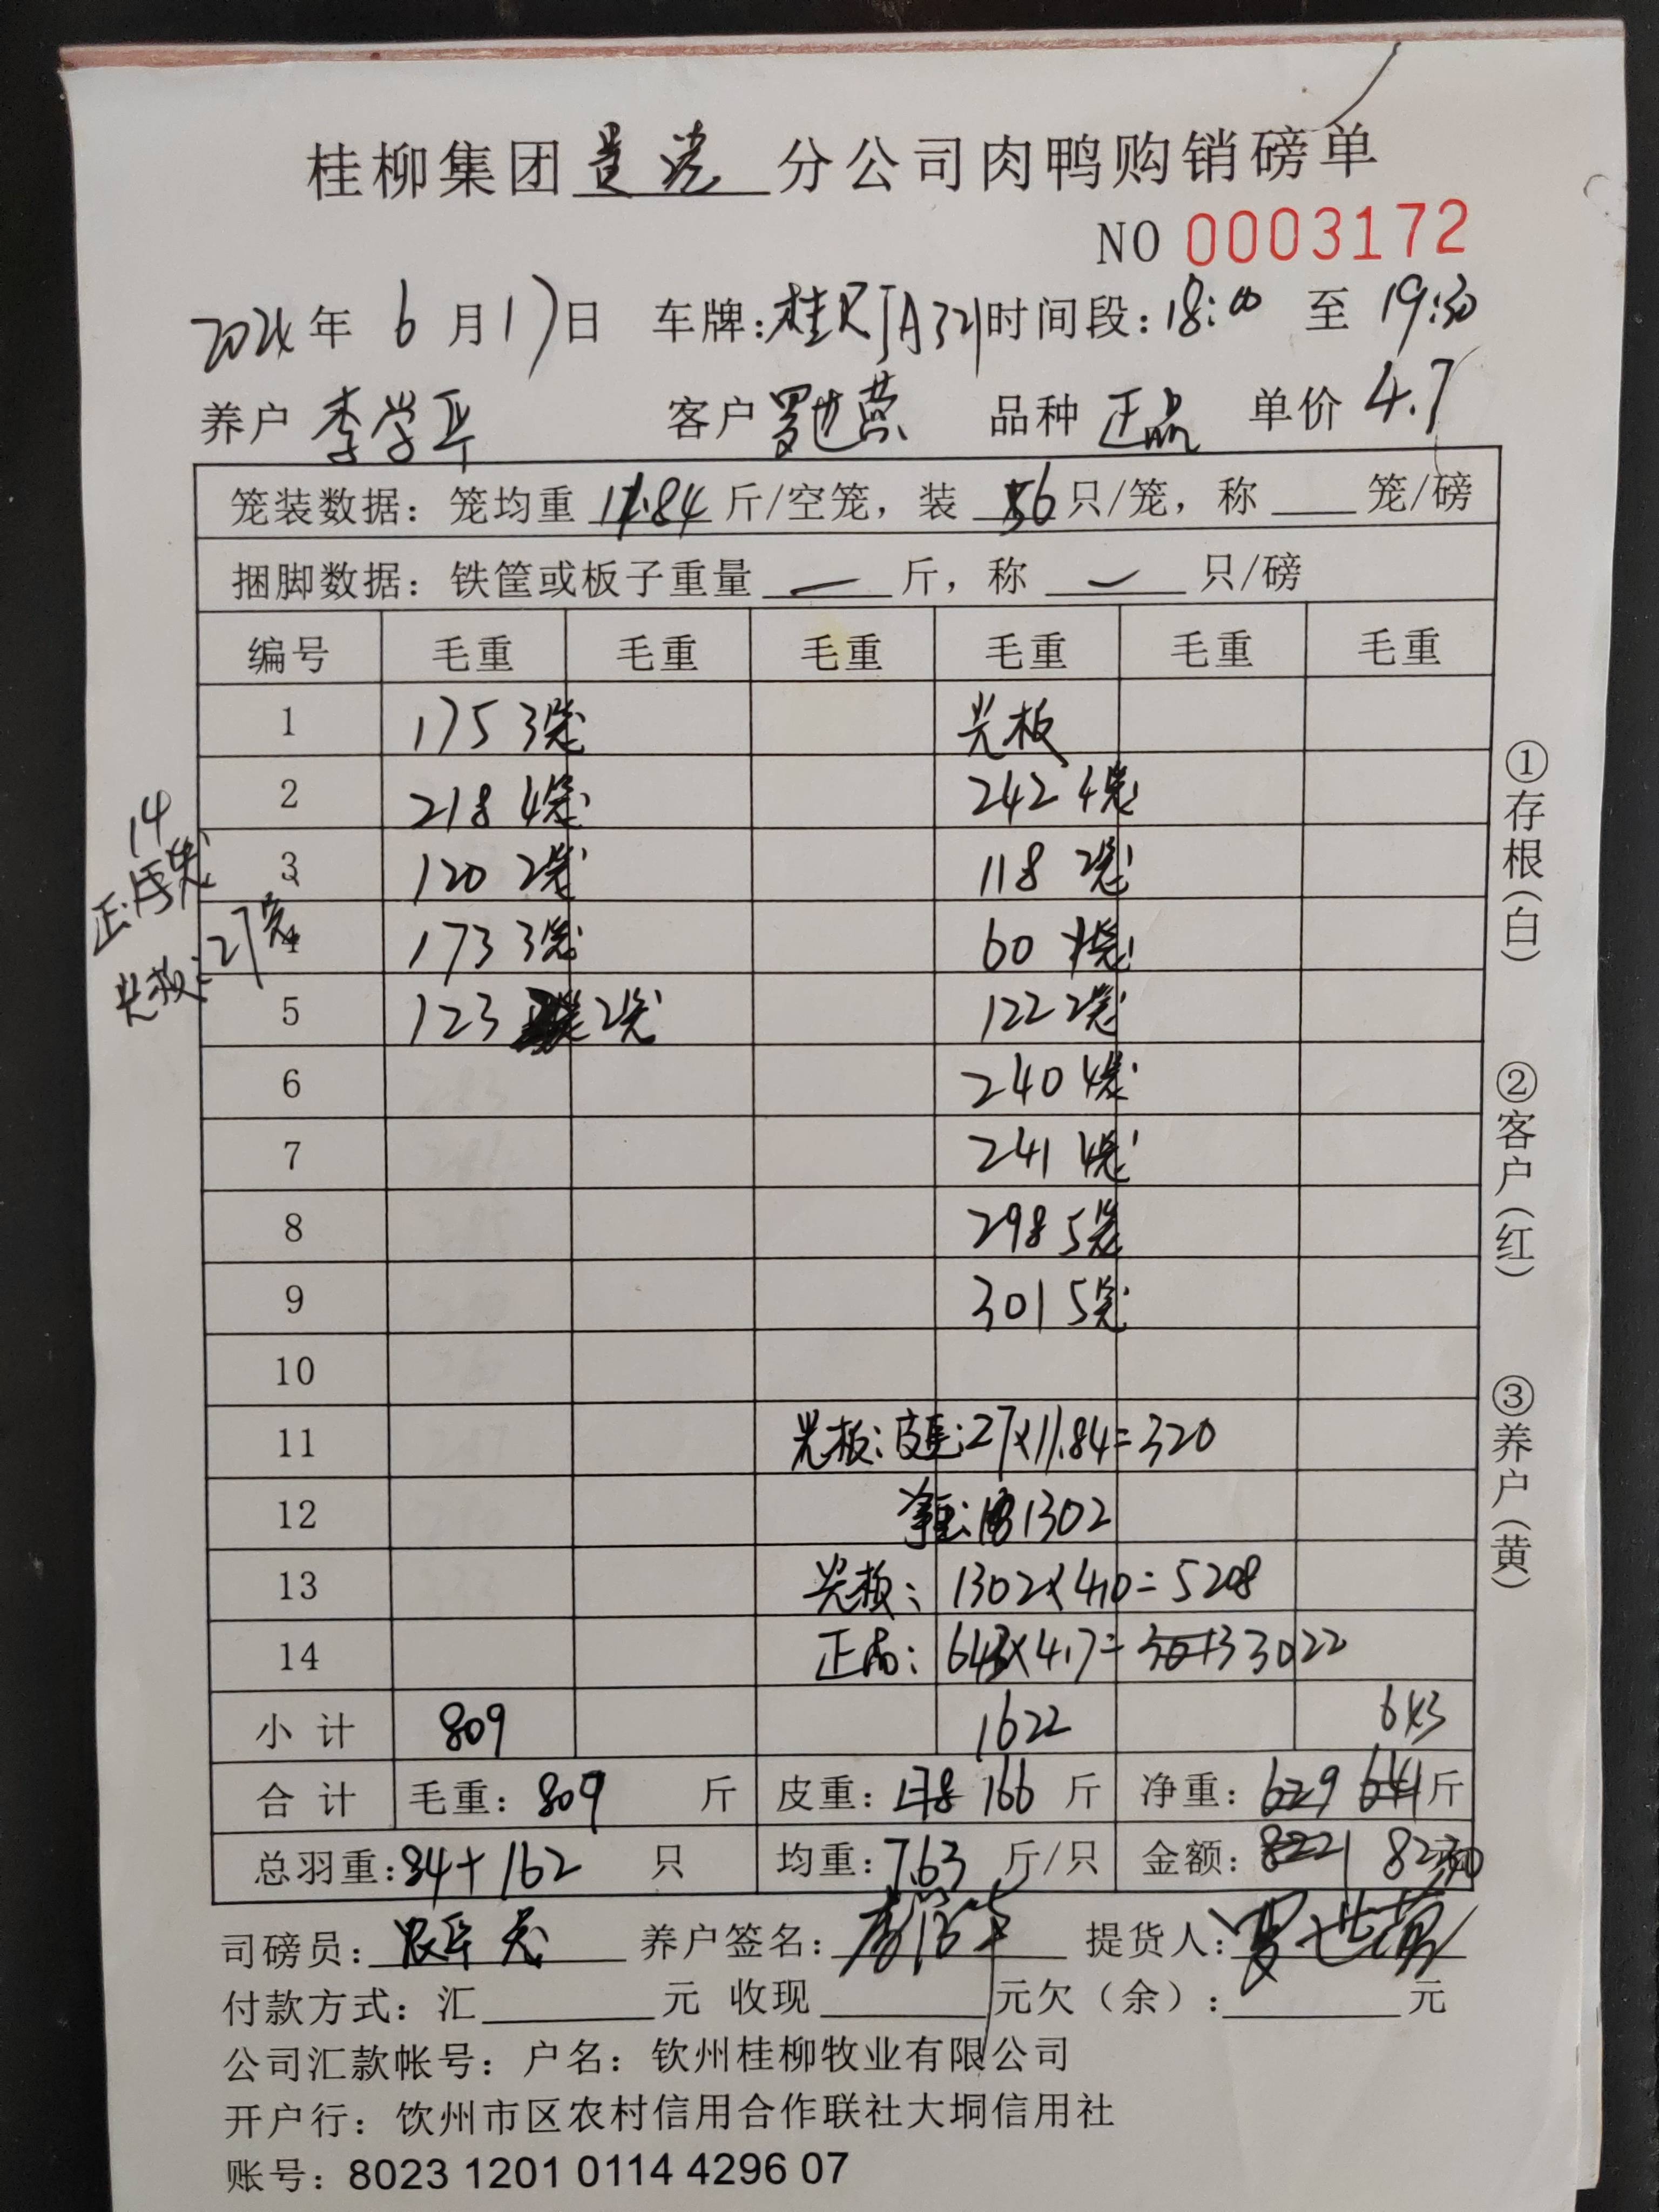 桂柳集团贵港分公司肉鸭购销磅单
NO 0003172
2024年 6月17日 车牌:桂RJA321 时间段:18:00 至 19:30
养户 李学平 客户 罗世营 品种 正品 单价 4.7
笼装数据:笼均重 11.84 斤/空笼,装 6 只/笼,称 笼/磅
捆脚数据:铁筐或板子重量 — 斤,称 — 只/磅
编号 毛重 毛重 毛重 毛重 毛重 毛重
1 175 3笼 光板
2 218 4笼 242 4笼
3 120 2笼 118 2笼
4 173 3笼 60 1笼
5 123 2笼 122 2笼
6 240 4笼
7 241 4笼
8 298 5笼
9 301 5笼
10
11 光板:皮重:27×11.84=320
12 净重:1302
13 光板:1302×4.0=5208
14 正品:643×4.7=3022
小计 809 1622 643
合计 毛重:809 斤 皮重:178 166 斤 净重:629 641 斤
总羽重:84+162 只 均重:7.63 斤/只 金额:8221 8230
14
光板:27笼
司磅员: 养户签名: 提货人:
付款方式:汇 元 收现 元欠(余): 元
公司汇款帐号:户名:钦州桂柳牧业有限公司
开户行:饮州市区农村信用合作联社大垌信用社
账号:8023 1201 0114 4296 07
①存根(白)
②客户(红)
③养户(黄)